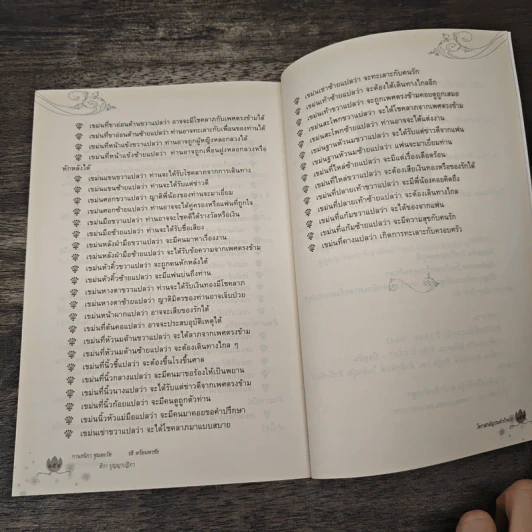 เขม่นที่ขาอ่อนด้านขวาแปลว่า อาจจะมีโชคลาภกับเพศตรงข้ามได้
เขม่นที่ขาอ่อนด้านซ้ายแปลว่า ท่านอาจทะเลาะกับเพื่อนของท่านได้
เขม่นที่หน้าแข้งขวาแปลว่า ท่านอาจถูกผู้หญิงหลอกลวงได้
เขม่นที่หน้าแข้งซ้ายแปลว่า ท่านอาจถูกเพื่อนฝูงหลอกลวงหรือ
หักหลังได้
เขม่นแขนขวาแปลว่า ท่านจะได้รับโชคลาภจากการเดินทาง
เขม่นแขนซ้ายแปลว่า ท่านจะได้รับแต่ข่าวดี
เขม่นศอกขวาแปลว่า ญาติพี่น้องของท่านจะมาเยี่ยม
เขม่นศอกซ้ายแปลว่า ท่านอาจจะได้คู่ครองหรือแฟนที่ถูกใจ
เขม่นมือขวาแปลว่า ท่านอาจจะโชคดีได้รางวัลหรือเงิน
เขม่นมือซ้ายแปลว่า ท่านจะได้รับชื่อเสียง
เขม่นหลังฝ่ามือขวาแปลว่า จะมีคนมาหาเรื่องงาน
เขม่นหลังฝ่ามือซ้ายแปลว่า จะได้รับข้อความจากเพศตรงข้าม
เขม่นหัวคิ้วขวาแปลว่า จะถูกคนหักหลังได้
เขม่นหัวคิ้วซ้ายแปลว่า จะมีแฟนบ่นถึงท่าน
เขม่นหางตาขวาแปลว่า ท่านจะได้รับเงินทองมีโชคลาภ
เขม่นหางตาซ้ายแปลว่า ญาติมิตรของท่านอาจเจ็บป่วย
เขม่นหน้าผากแปลว่า อาจจะเสียของรักได้
เขม่นที่ต้นคอแปลว่า อาจจะประสบอุบัติเหตุได้
เขม่นที่หัวนมด้านขวาแปลว่า จะได้ลาภจากเพศตรงข้าม
เขม่นที่หัวนมด้านซ้ายแปลว่า จะต้องเดินทางไกล ๆ
เขม่นที่นิ้วชี้แปลว่า จะต้องขึ้นโรงขึ้นศาล
เขม่นที่นิ้วกลางแปลว่า จะมีคนมาขอร้องให้เป็นพยาน
เขม่นที่นิ้วนางแปลว่า จะได้รับแต่ข่าวดีจากเพศตรงข้าม
เขม่นที่นิ้วก้อยแปลว่า จะมีคนดูถูกตัวท่าน
เขม่นนิ้วหัวแม่มือแปลว่า จะมีคนมาคอยขอคำปรึกษา
เขม่นเข่าขวาแปลว่า จะได้โชคลาภมาแบบสบาย
เขม่นเข่าซ้ายแปลว่า จะทะเลาะกับคนรัก
เขม่นเท้าซ้ายแปลว่า จะต้องได้เดินทางไกลอีก
เขม่นเท้าขวาแปลว่า จะถูกเพศตรงข้ามคอยดูถูกเสมอ
เขม่นสะโพกขวาแปลว่า จะได้โชคลาภจากเพศตรงข้าม
เขม่นสะโพกซ้ายแปลว่า ท่านอาจจะได้แต่งงาน
เขม่นฐานหัวนมขวาแปลว่า จะได้รับแต่ข่าวดีจากแฟน
เขม่นฐานหัวนมซ้ายแปลว่า แฟนจะมาเยี่ยมท่าน
เขม่นที่ไหล่ซ้ายแปลว่า จะมีแต่เรื่องเดือดร้อน
เขม่นที่ไหล่ขวาแปลว่า จะต้องเสียเงินทองหรือของรักได้
เขม่นที่ปลายเท้าขวาแปลว่า จะมีพี่น้องคอยคิดถึง
เขม่นที่ปลายเท้าซ้ายแปลว่า จะต้องเดินทางไกล
เขม่นที่แก้มขวาแปลว่า จะได้ของจากแฟน
เขม่นที่แก้มซ้ายแปลว่า จะมีความสุขกับคนรัก
เขม่นที่คางแปลว่า เกิดการทะเลาะกับครอบครัว